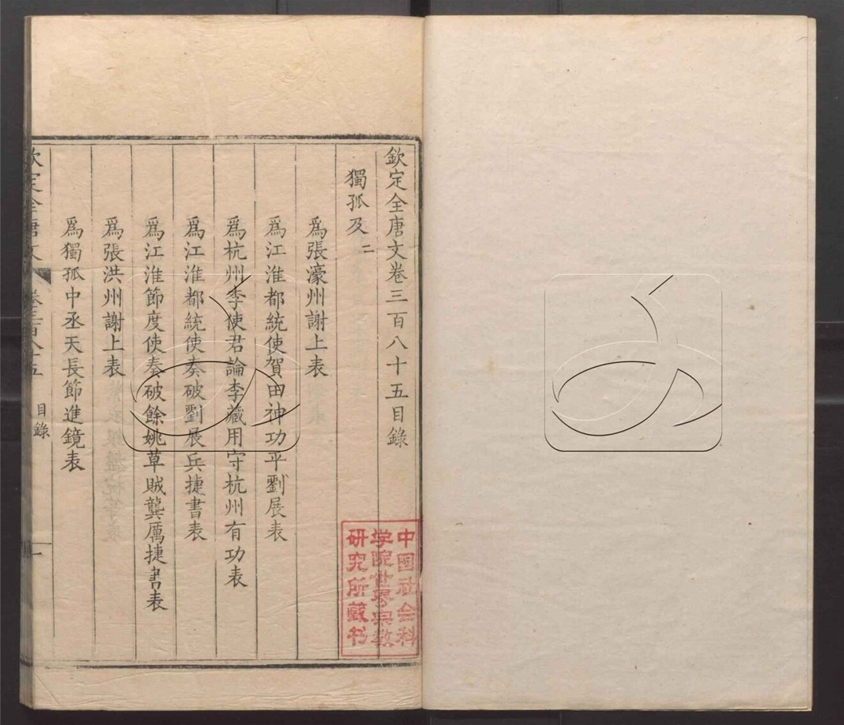 欽定全唐文卷三百八十五目錄
獨孤及 二
爲張濠州謝上表
爲江淮都統使賀田神功平劉展表
爲杭州李使君論李藏用守杭州有功表
爲江淮都統使奏破劉展兵捷書表
爲江淮節度使奏破餘姚草賊龔厲捷書表
爲張洪州謝上表
爲獨孤中丞天長節進鏡表
欽定全唐文 卷三百八十五 目錄 一
中国社会科
学院世界宗教
研究所藏书